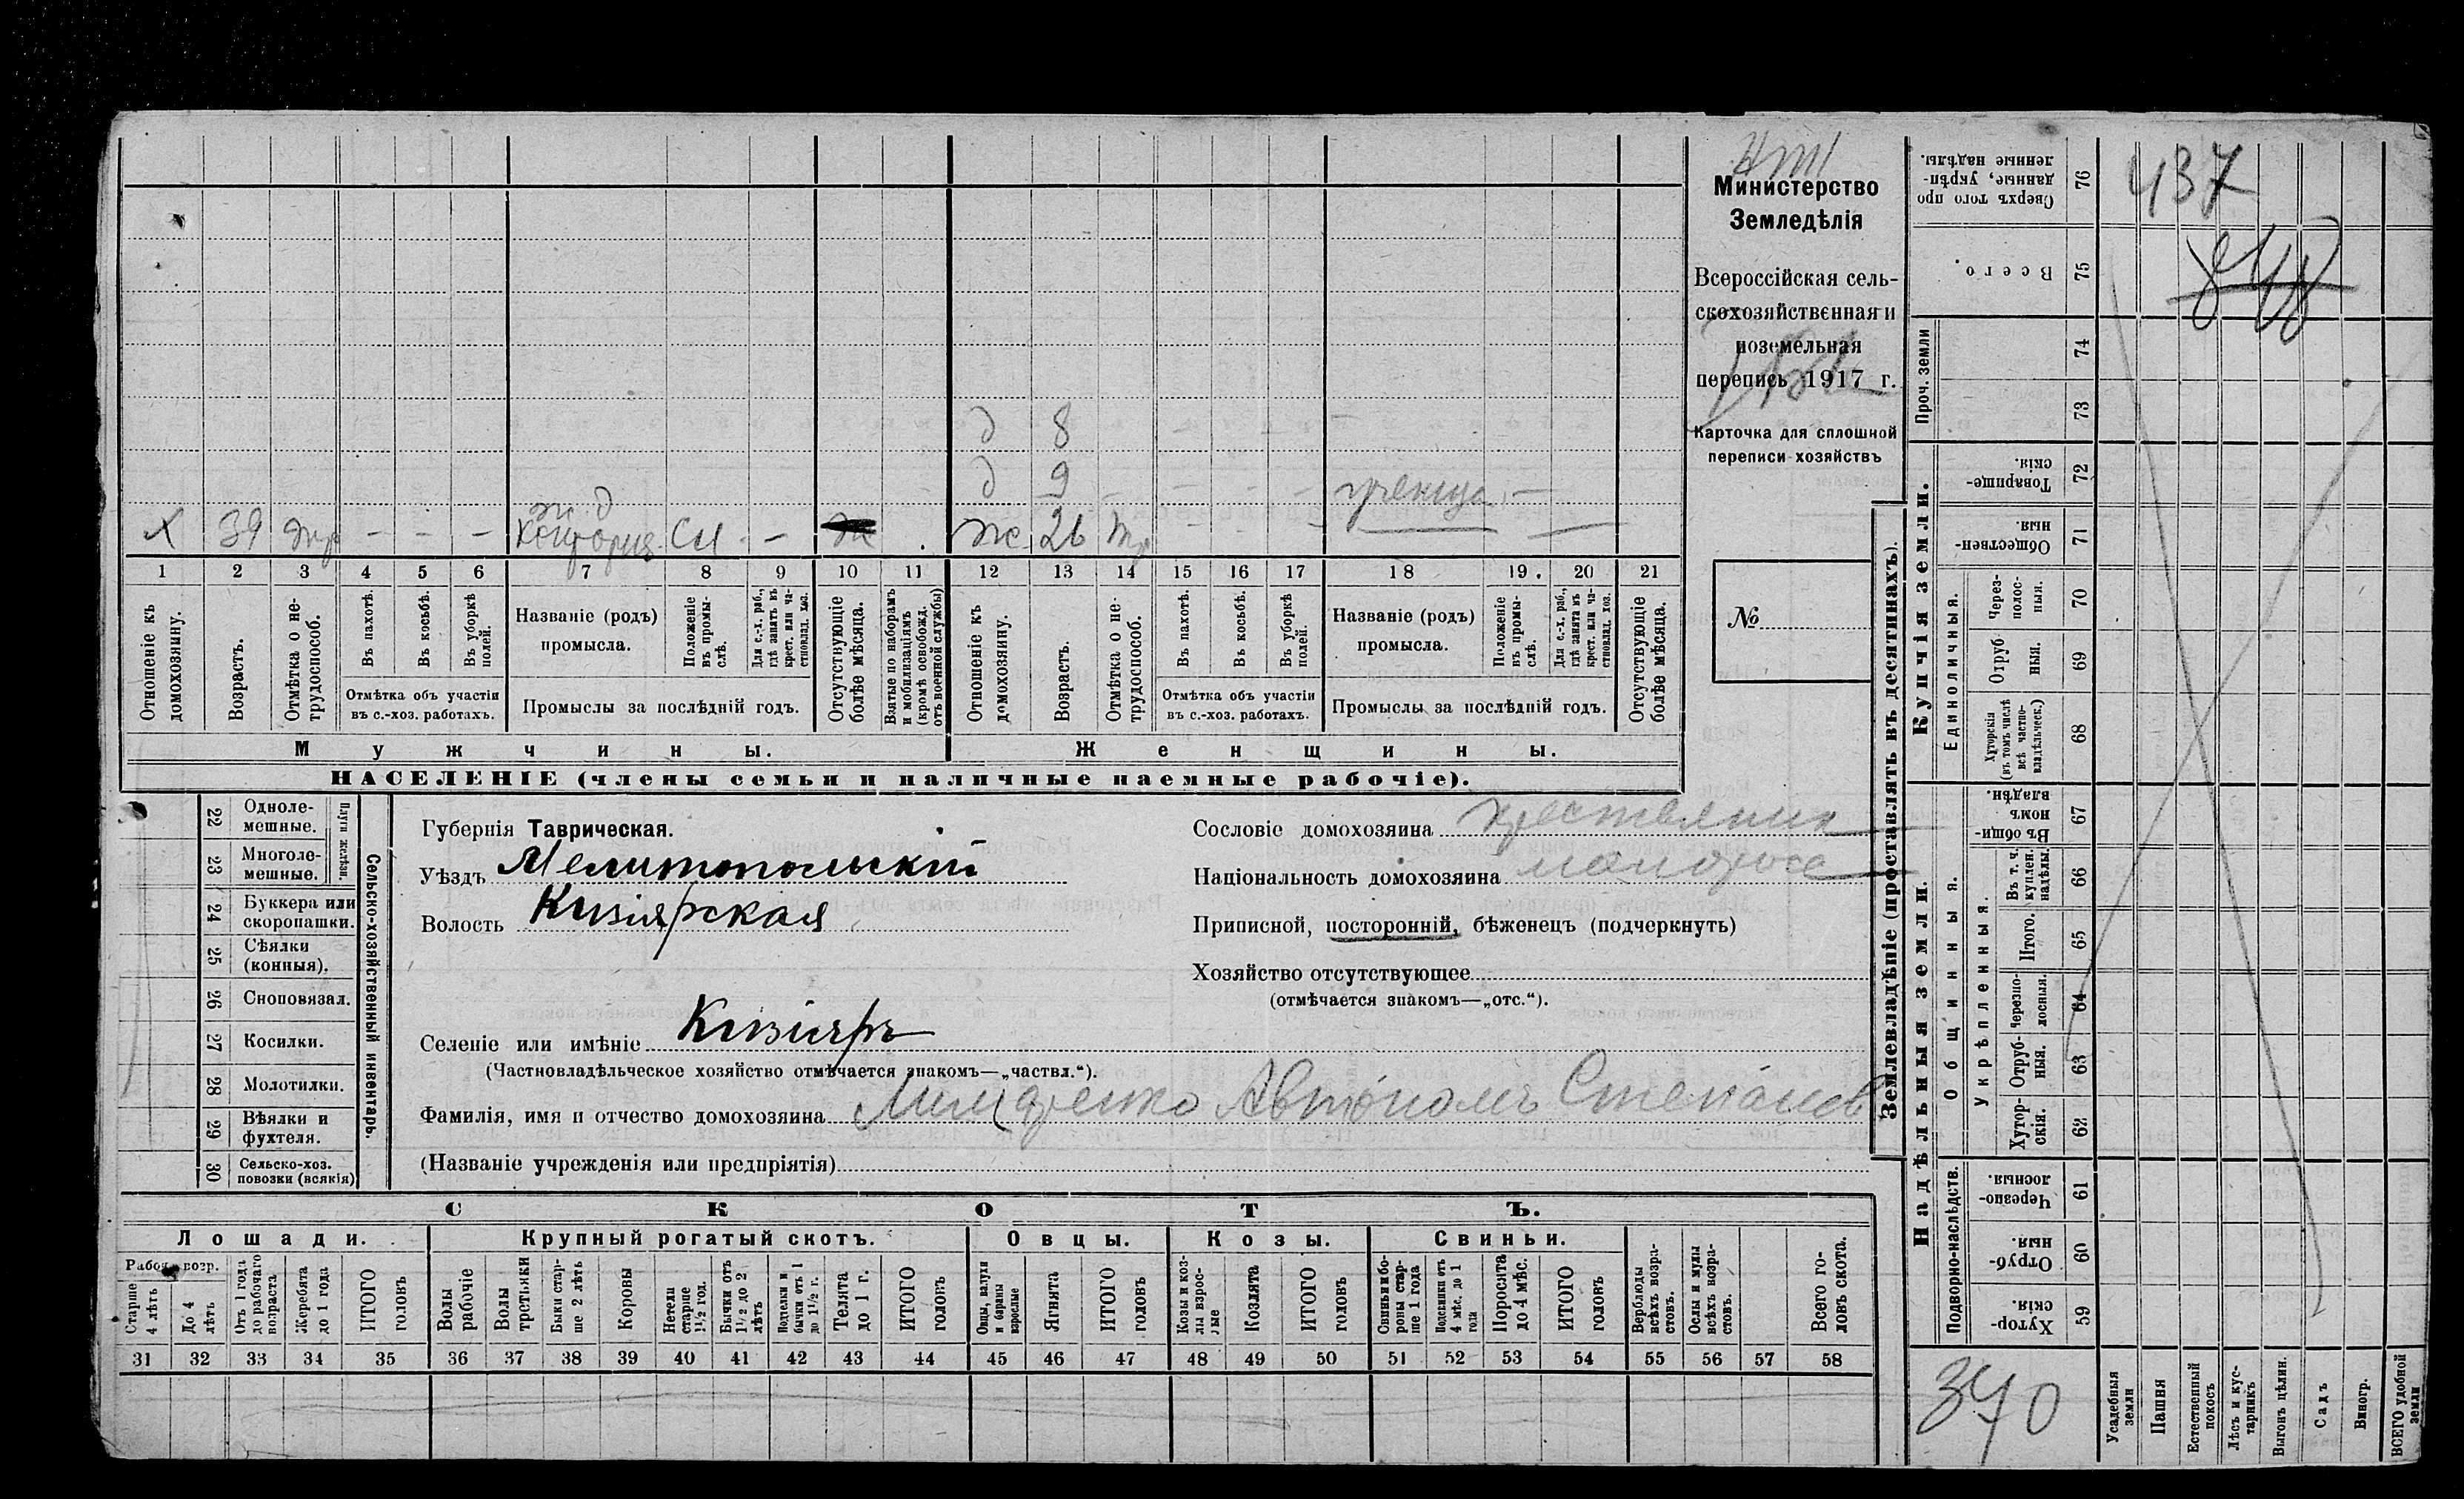 Министерство
Земледѣлія
Всероссійская сель-
скохозяйственная и
поземельная
перепись 1917 г.
Карточка для сплошной
переписи хозяйствъ
№
437
848
д 8
д 9
ж. д
х 39 тр - - - Контория. Сл - ж ж 26 тр
1 2 3 4 5 6 7 8 9 10 11 12 13 14 15 16 17 18 19. 20 21
Отношеніе къ домохозяину.
Возрастъ.
Отмѣтка о не-трудоспособ.
Въ пахотѣ.
Въ косьбѣ.
Въ уборкѣ полей.
Отмѣтка объ участіи въ с.-хоз. работахъ.
Названіе (родъ) промысла.
Положеніе въ промы-слѣ.
Для с.-х. раб., гдѣ занятъ въ крест. или ча-стновлад. хоз.
Промыслы за послѣдній годъ.
Отсутствующіе болѣе мѣсяца.
Взятые по наборамъ и мобилизаціямъ (кромѣ освобожд. отъ военной службы)
Отношеніе къ домохозяину.
Возрастъ.
Отмѣтка о не-трудоспособ.
Въ пахотѣ.
Въ косьбѣ.
Въ уборкѣ полей.
Отмѣтка объ участіи въ с.-хоз. работахъ.
Названіе (родъ) промысла.
Положеніе въ промы-слѣ.
Для с.-х. раб., гдѣ занята въ крест. или ча-стновлад. хоз.
Промыслы за послѣдній годъ.
Отсутствующіе болѣе мѣсяца.
Мужчины.
Женщины.
НАСЕЛЕНІЕ (члены семьи и наличные наемные рабочіе).
Сельско-хозяйственный инвентарь.
Плуги желѣзн.
22 Одноле-мешные.
23 Многоле-мешные.
24 Буккера или скоропашки.
25 Сѣялки (конныя).
26 Сноповязал.
27 Косилки.
28 Молотилки.
29 Вѣялки и фухтеля.
30 Сельско-хоз. повозки (всякія)
Губернія Таврическая.
Уѣздъ Мелитопольскій
Волость Кизіярская
Селеніе или имѣніе Кизіяръ
(Частновладѣльческое хозяйство отмѣчается знакомъ—„частвл.“).
Фамилія, имя и отчество домохозяина Автономъ Степанов
(Названіе учрежденія или предпріятія)
Сословіе домохозяина крестьянин
Національность домохозяина малоросс
Приписной, посторонній, бѣженецъ (подчеркнуть)
Хозяйство отсутствующее
(отмѣчается знакомъ—„отс.“).
СКОТЪ.
Лошади. Крупный рогатый скотъ. Овцы. Козы. Свиньи.
Рабоч. возр.
Старше 4 лѣтъ
До 4 лѣтъ
Отъ 1 года до рабочаго возраста
Жеребята до 1 года
ИТОГО головъ
Волы рабочіе
Волы третьяки
Быки стар-ше 2 лѣтъ
Коровы
Нетели старше 1½ год.
Бычки отъ 1½ до 2 лѣтъ
Подтелки и бычки отъ 1 до 1½ г.
Телята до 1 г.
ИТОГО головъ
Овцы, валухи и бараны взрослые
Ягнята
ИТОГО головъ
Козы и коз-лы взрос-лые
Козлята
ИТОГО головъ
Свиньи и бо-ровы стар-ше 1 года
Подсвинки отъ 4 мѣс. до 1 года
Поросята до 4 мѣс.
ИТОГО головъ
Верблюды всѣхъ возра-стовъ.
Ослы и мулы всѣхъ возра-стовъ.
Всего го-ловъ скота.
31 32 33 34 35 36 37 38 39 40 41 42 43 44 45 46 47 48 49 50 51 52 53 54 55 56 57 58
Землевладѣніе (проставлять въ десятинахъ).
Сверхъ того про данные, укрѣп-ленные надѣлы. 76
Всего. 75
Проч. земли
74
73
Купчія земли.
Товарище-скія. 72
Обществен-ныя. 71
Единоличныя.
Через-полос-ныя. 70
Отруб ныя. 69
Хуторскія (въ томъ числѣ всѣ частно-владѣльческ.) 68
Надѣльныя земли.
Общинныя.
Въ общин-номъ владѣн. 67
Укрѣпленныя.
Въ т. ч. куплен. надѣлы. 66
Итого. 65
Черезпо-лосныя. 64
Отруб-ныя. 63
Хутор-скія. 62
Подворно-наслѣдств.
Черезпо-лосныя. 61
Отруб-ныя. 60
Хутор-скія. 59
340
Усадебныя земли
Пашня
Естественный покосъ
Лѣсъ и кус-тарникъ
Выгонъ цѣлин.
Садъ
Виногр.
ВСЕГО удобной земли